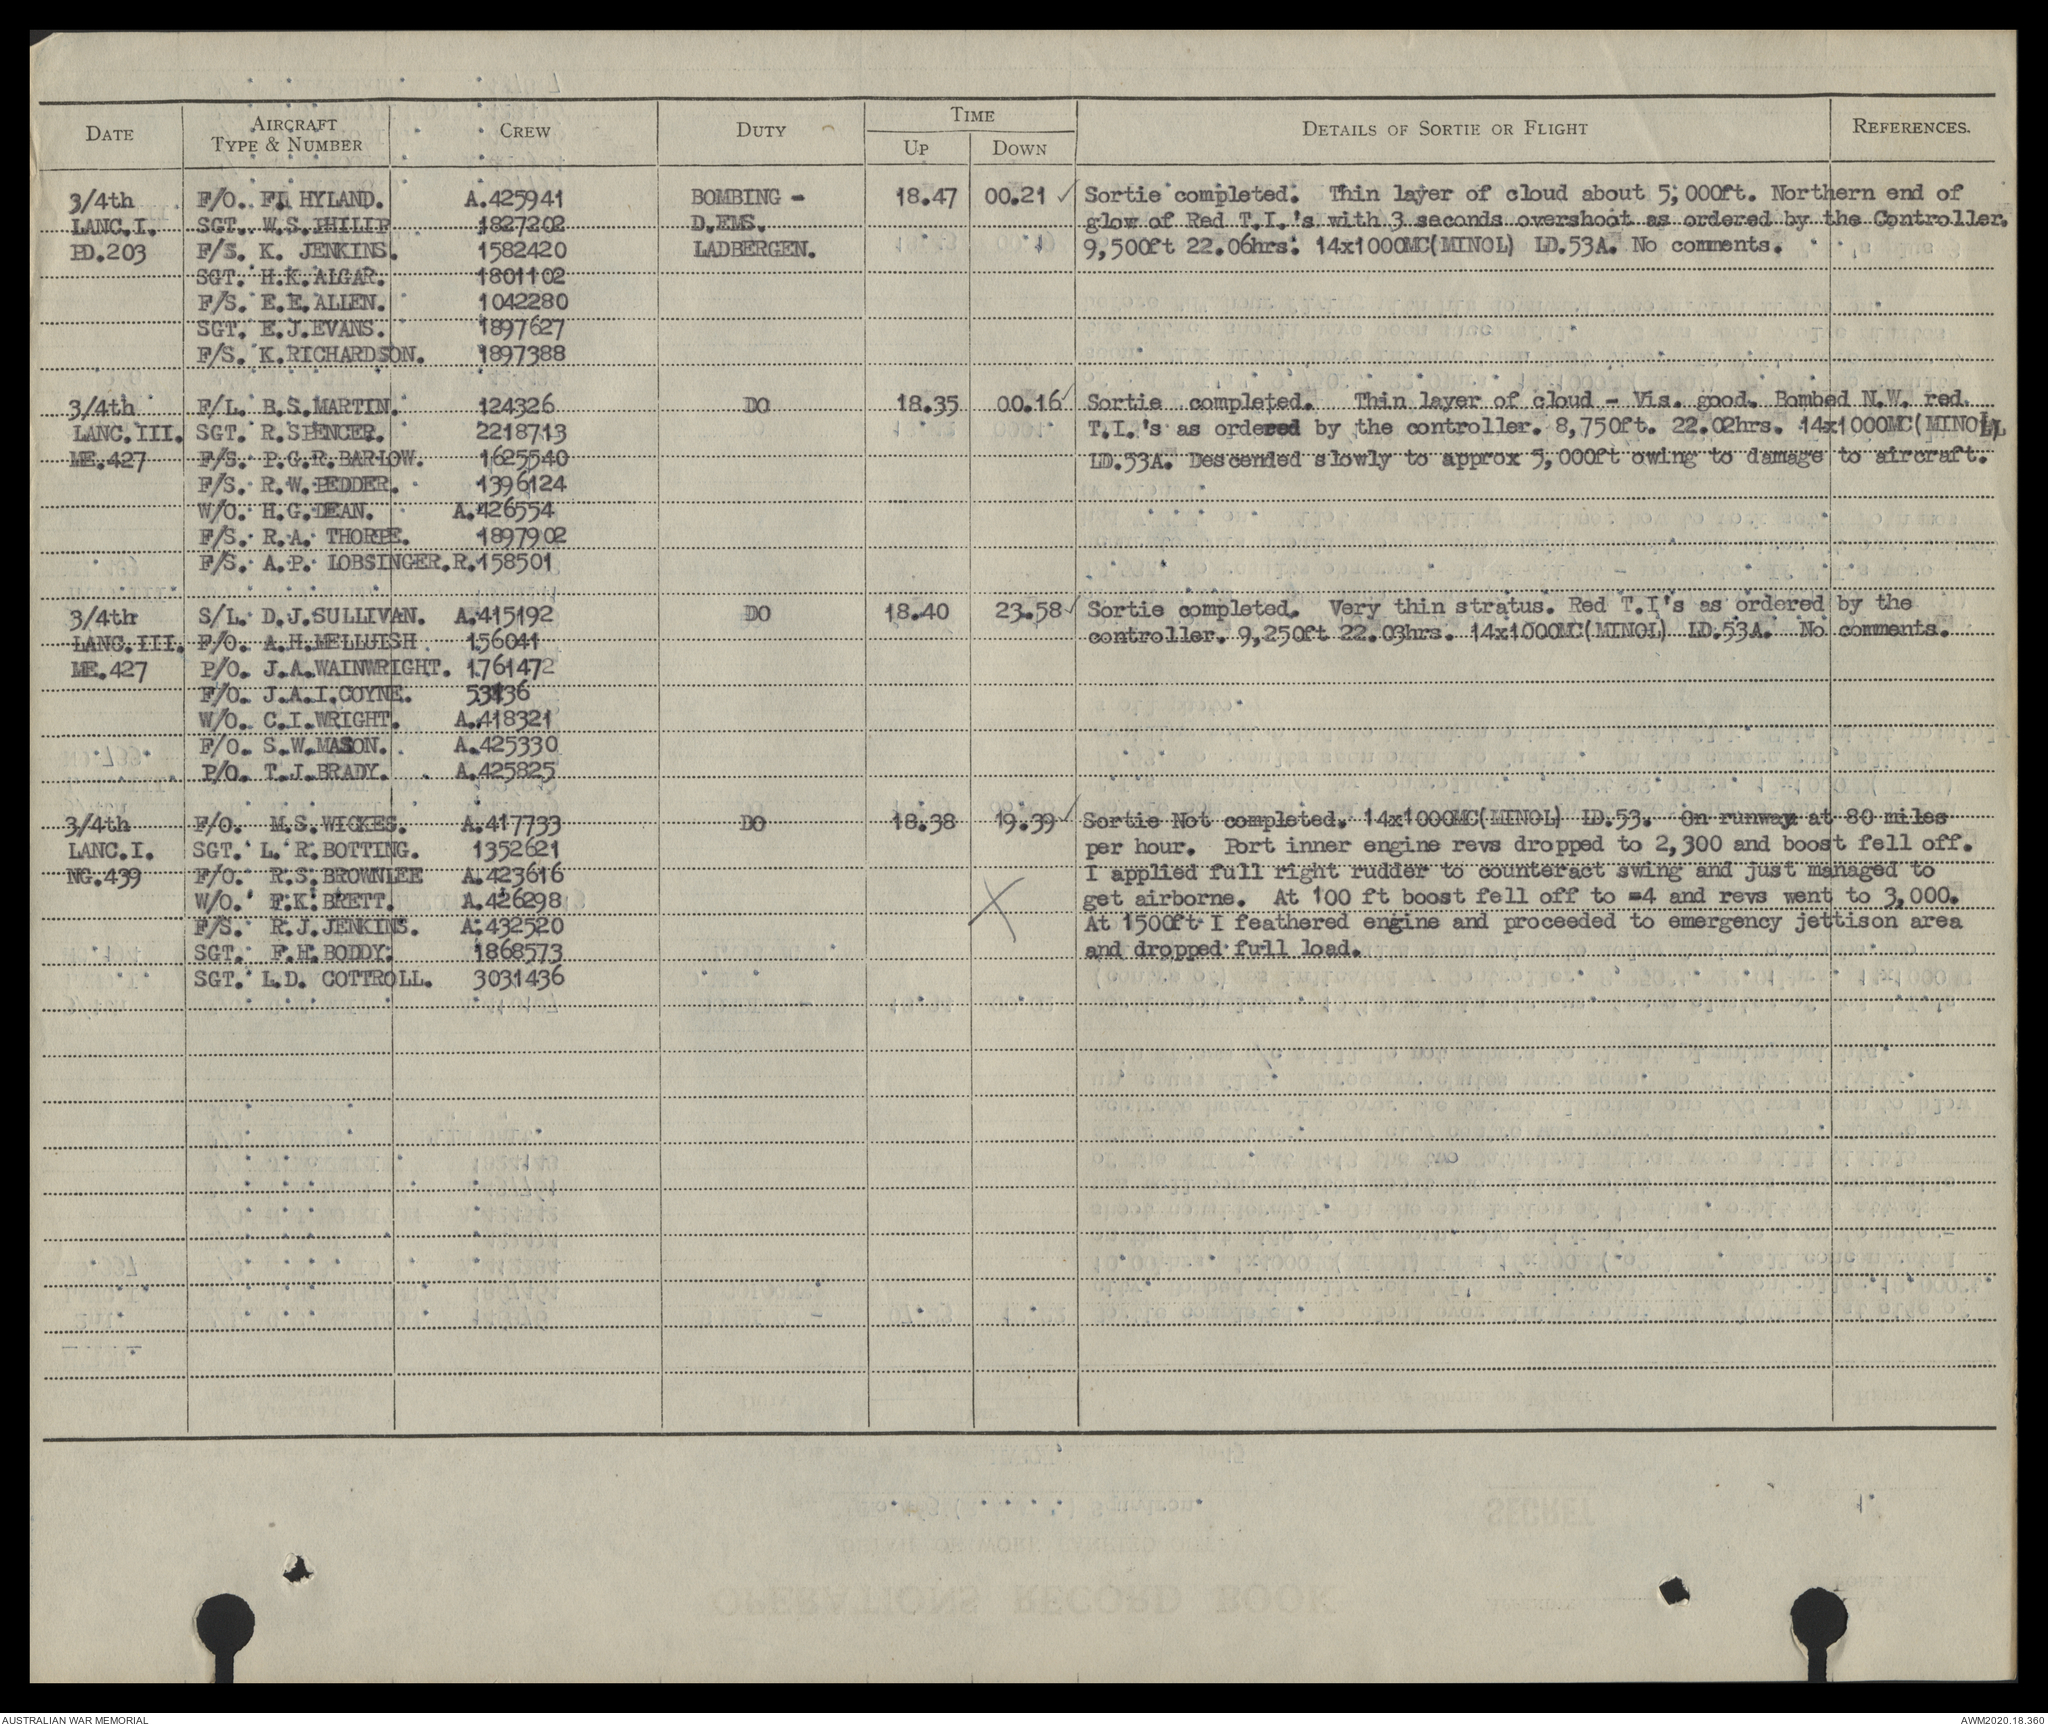 DATE AIRCRAFT TYPE & NUMBER CREW DUTY TIME UP DOWN DETAILS OF SORTIE OR FLIGHT REFERENCES.
3/4th F/O. F. HYLAND. A.425941 BOMBING - 18.47 00.21 ✓ Sortie completed. Thin layer of cloud about 5,000ft. Northern end of
LANC.I. SGT. W.S.PHILIP 1827202 D.EMS. glow of Red T.I.'s with 3 seconds overshoot as ordered by the Controller.
PD.203 F/S. K. JENKINS. 1582420 LADBERGEN. 9,500ft 22.06hrs. 14x1000MC(MINOL) LD.53A. No comments.
SGT. H.K.ALGAR. 1801102
F/S. E.E.ALLEN. 1042280
SGT. E.J.EVANS. 1897627
F/S. K.RICHARDSON. 1897388
3/4th F/L. B.S.MARTIN. 124326 DO 18.35 00.16 ✓ Sortie completed. Thin layer of cloud - Vis. good. Bombed N.W. red.
LANC.III. SGT. R.SPENCER. 2218713 T.I.'s as ordered by the controller. 8,750ft. 22.02hrs. 14x1000MC(MINOL)
ME.427 F/S. P.G.R.BARLOW. 1625540 LD.53A. Descended slowly to approx 5,000ft owing to damage to aircraft.
F/S. R.W.PEDDER. 1396124
W/O. H.G.DEAN. A.426554
F/S. R.A. THORPE. 1897902
F/S. A.P. LOBSINGER. R.158501
3/4th S/L. D.J.SULLIVAN. A.415192 DO 18.40 23.58 ✓ Sortie completed. Very thin stratus. Red T.I's as ordered by the
LANC.III. F/O. A.H.MELLUISH 156041 controller. 9,250ft 22.03hrs. 14x1000MC(MINOL) LD.53A. No comments.
ME.427 P/O. J.A.WAINWRIGHT. 1761472
F/O. J.A.I.COYNE.
W/O. C.I.WRIGHT. A.418321
F/O. S.W.MASON. A.425330
P/O. T.J.BRADY. A.425825
3/4th F/O. M.S.WICKES. A.417733 DO 18.38 19.39 ✓ Sortie Not completed. 14x1000MC(MINOL) LD.53. On runway at 80 miles
LANC.I. SGT. L.R.BOTTING. 1352621 per hour. Port inner engine revs dropped to 2,300 and boost fell off.
NG.439 F/O. R.S.BROWNLEE A.423616 I applied full right rudder to counteract swing and just managed to
W/O. F.K.BRETT. A.426298 X get airborne. At 100 ft boost fell off to =4 and revs went to 3,000.
F/S. R.J.JENKINS. A.432520 At 1500ft I feathered engine and proceeded to emergency jettison area
SGT. F.H.BODDY. 1868573 and dropped full load.
SGT. L.D. COTTROLL. 3031436
AUSTRALIAN WAR MEMORIAL AWM2020.18.360